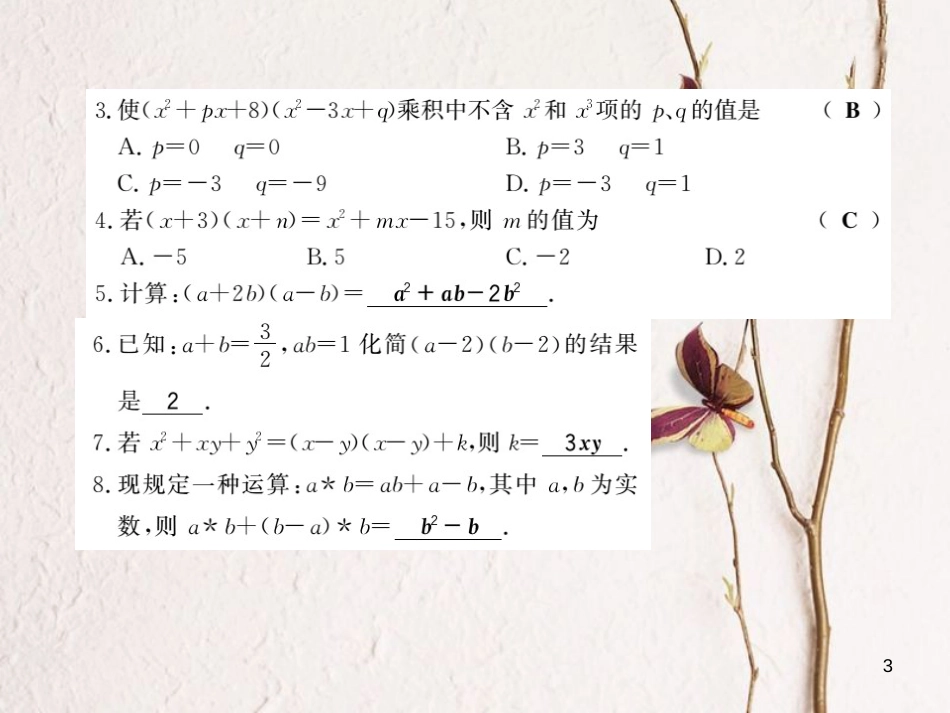 3.使(x²+px+8)(x²-3x+q)乘积中不含 x²和 x³项的 p、q的值是 ( B )
A. p=0 q=0 B. p=3 q=1
C. p=-3 q=-9 D. p=-3 q=1
4.若(x+3)(x+n)=x²+mx-15,则 m 的值为 ( C )
A.-5 B.5 C.-2 D.2
5.计算:(a+2b)(a-b)= a²+ab-2b² .
6.已知:a+b=3/2,ab=1 化简(a-2)(b-2)的结果
是 2 .
7.若 x²+xy+y²=(x-y)(x-y)+k,则 k= 3xy .
8.现规定一种运算:a*b=ab+a-b,其中 a,b 为实
数,则 a*b+(b-a)*b= b²-b .
3